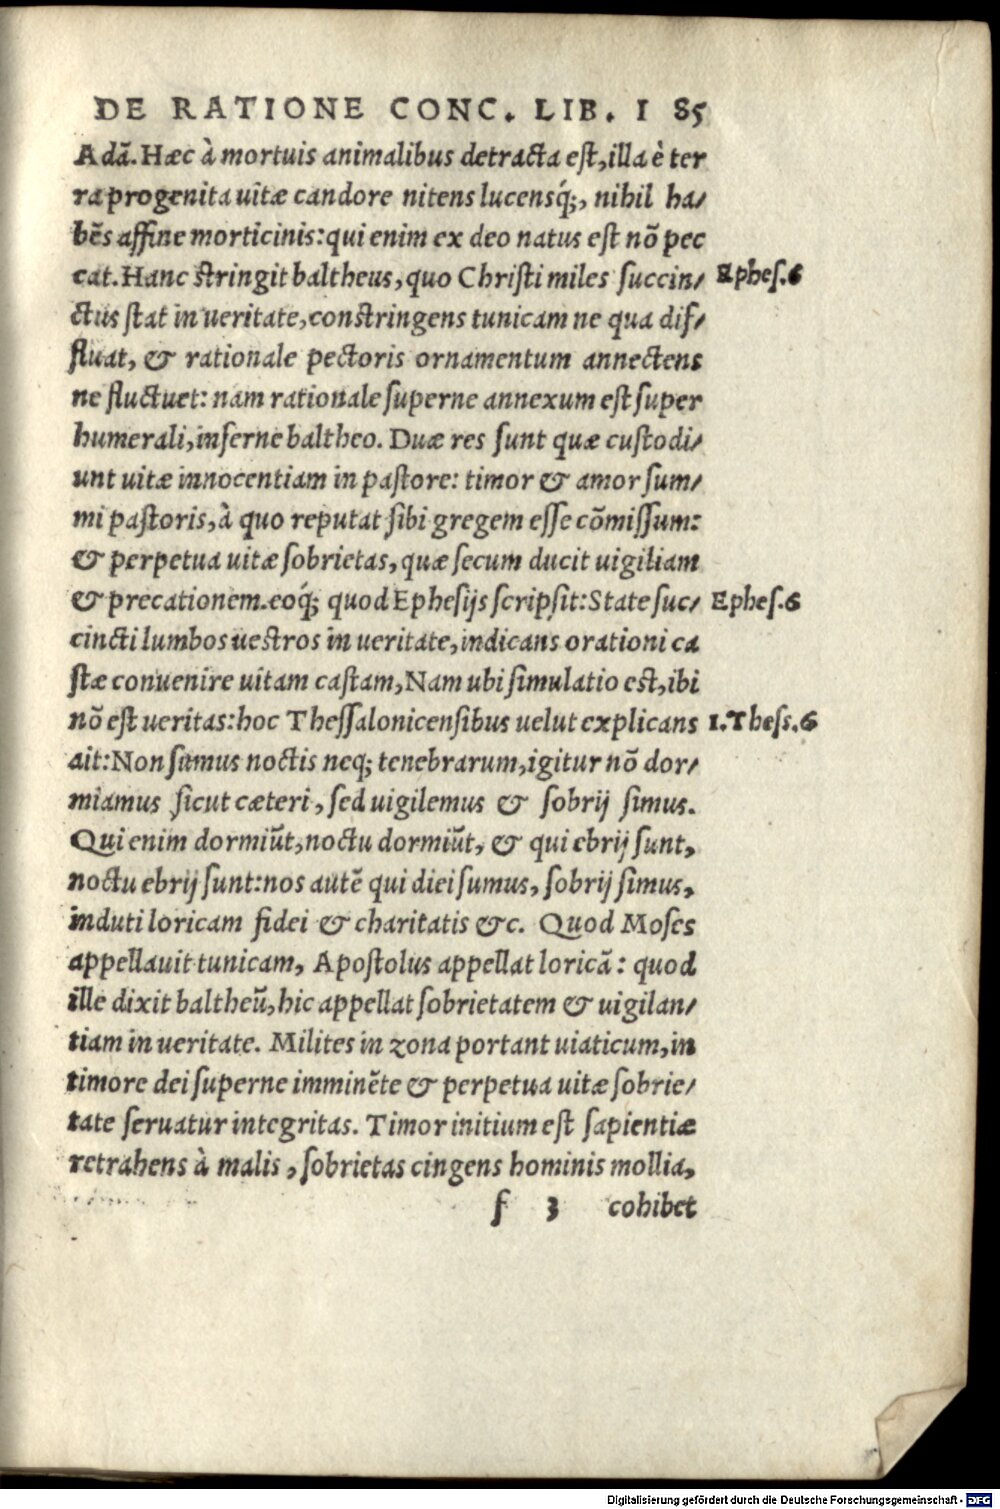 DE RATIONE CONC. LIB. I 85
Adã. Hæc à mortuis animalibus detracta est, illa è ter
ra progenita uitæ candore nitens lucensq́;, nihil ha/
bẽs affine morticinis: qui enim ex deo natus est nõ pec
cat. Hanc stringit baltheus, quo Christi miles succin/ Ephes.6
ctus stat in ueritate, constringens tunicam ne qua dif/
fluat, & rationale pectoris ornamentum annectens
ne fluctuet: nam rationale superne annexum est super
humerali, inferne baltheo. Duæ res sunt quæ custodi/
unt uitæ innocentiam in pastore: timor & amor sum/
mi pastoris, à quo reputat sibi gregem esse cõmissum:
& perpetua uitæ sobrietas, quæ secum ducit uigiliam
& precationem. eoq́; quod Ephesijs scripsit: State suc/ Ephes.6
cincti lumbos uestros in ueritate, indicans orationi ca
stæ conuenire uitam castam, Nam ubi simulatio est, ibi
nõ est ueritas: hoc Thessalonicensibus uelut explicans 1. Thess.6
ait: Non sumus noctis neq; tenebrarum, igitur nõ dor/
miamus sicut cæteri, sed uigilemus & sobrij simus.
Qui enim dormiũt, noctu dormiũt, & qui ebrij sunt,
noctu ebrij sunt: nos autẽ qui diei sumus, sobrij simus,
induti loricam fidei & charitatis &c. Quod Moses
appellauit tunicam, Apostolus appellat loricã: quod
ille dixit baltheũ, hic appellat sobrietatem & uigilan/
tiam in ueritate. Milites in zona portant uiaticum, in
timore dei superne imminẽte & perpetua uitæ sobrie/
tate seruatur integritas. Timor initium est sapientiæ
retrahens à malis, sobrietas cingens hominis mollia,
f 3 cohibet
Digitalisierung gefördert durch die Deutsche Forschungsgemeinschaft - DFG